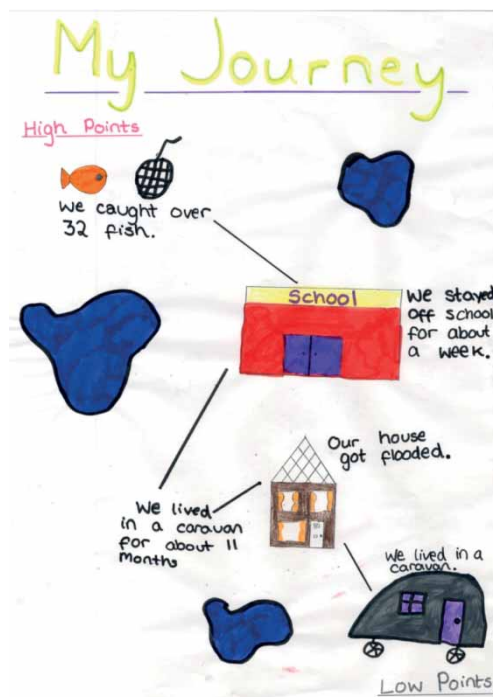 My Journey
High Points
We caught over
32 fish.
School
We stayed
off school
for about
a week.
Our house
got flooded.
We lived
in a caravan
for about 11
months
We lived in a
caravan.
Low Points